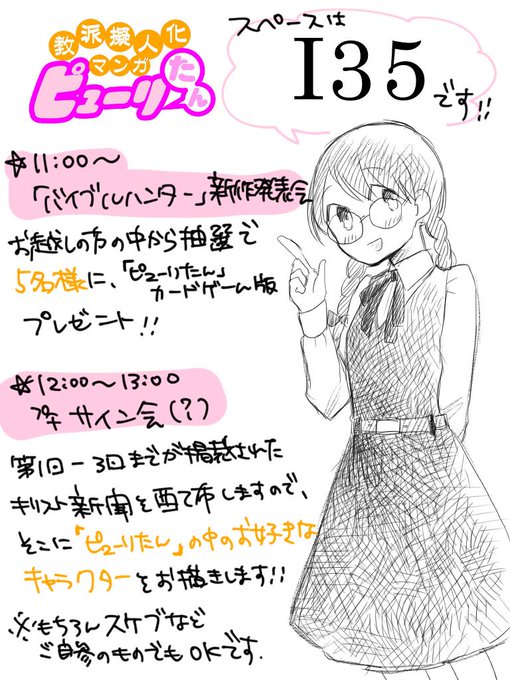 教派擬人化
マンガ
ピューリたん
スペースは
I35
です!!
☆11:00～
「バイブルハンター」新作発表会
お越しの方の中から抽選で
5名様に、「ピューリたん」
カードゲーム版
プレゼント!!
☆12:00～13:00
プチサイン会(?)
第1回-3回までが掲載された
キリスト新聞を配布しますので、
そこに「ピューリたん」の中のお好きな
キャラクターをお描きします!!
※もちろんスケブなど
ご自参のものでもOKです.